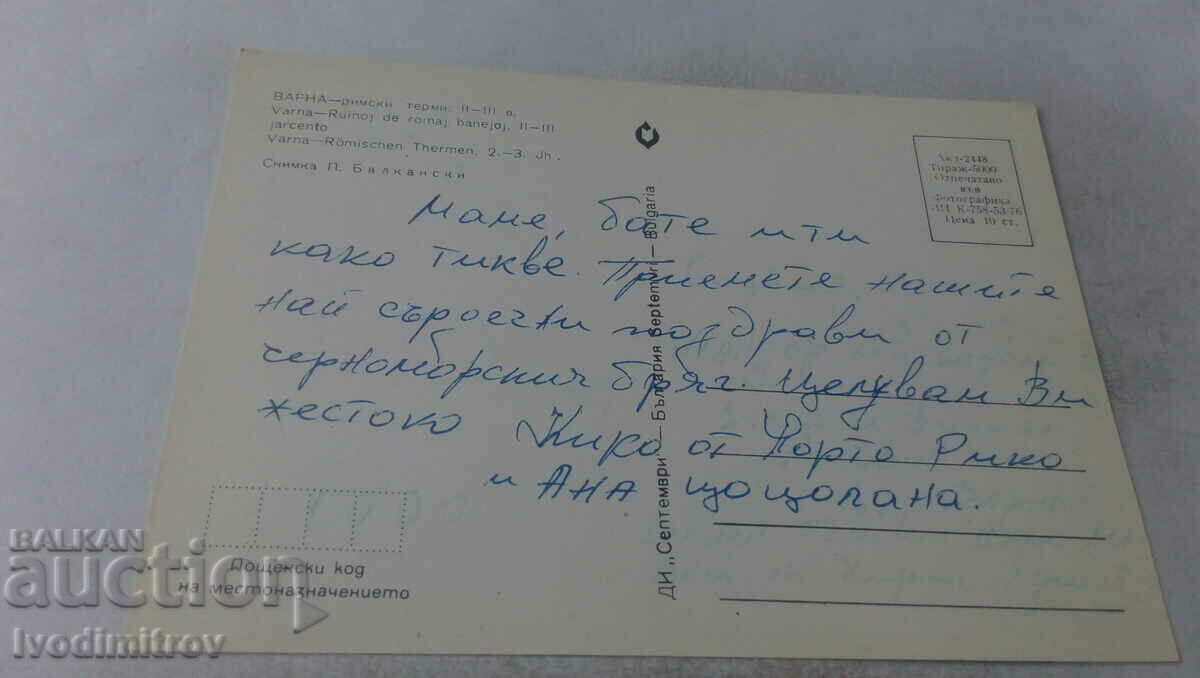 ВАРНА—римски терми, II—III в.
Varna—Ruinoj de romaj banejoj, II—III
jarcento
Varna—Römischen Thermen, 2.—3. Jh.
Снимка П. Балкански
Акт-2448
Тираж-5000
Отпечатано
във
Фотографика
ДП К-758-53-76
Цена 10 ст.
Маме, бате
како Тикве. Приемете нашите
най сърдечни поздрави от
черноморския бряг. Целувам Ви
жестоко Кико от Порто Рико
и Ана
ДИ „Септември“ — България Septemvri — Bulgaria
Пощенски код
на местоназначението
BALKAN
auction
Ivodimitrov